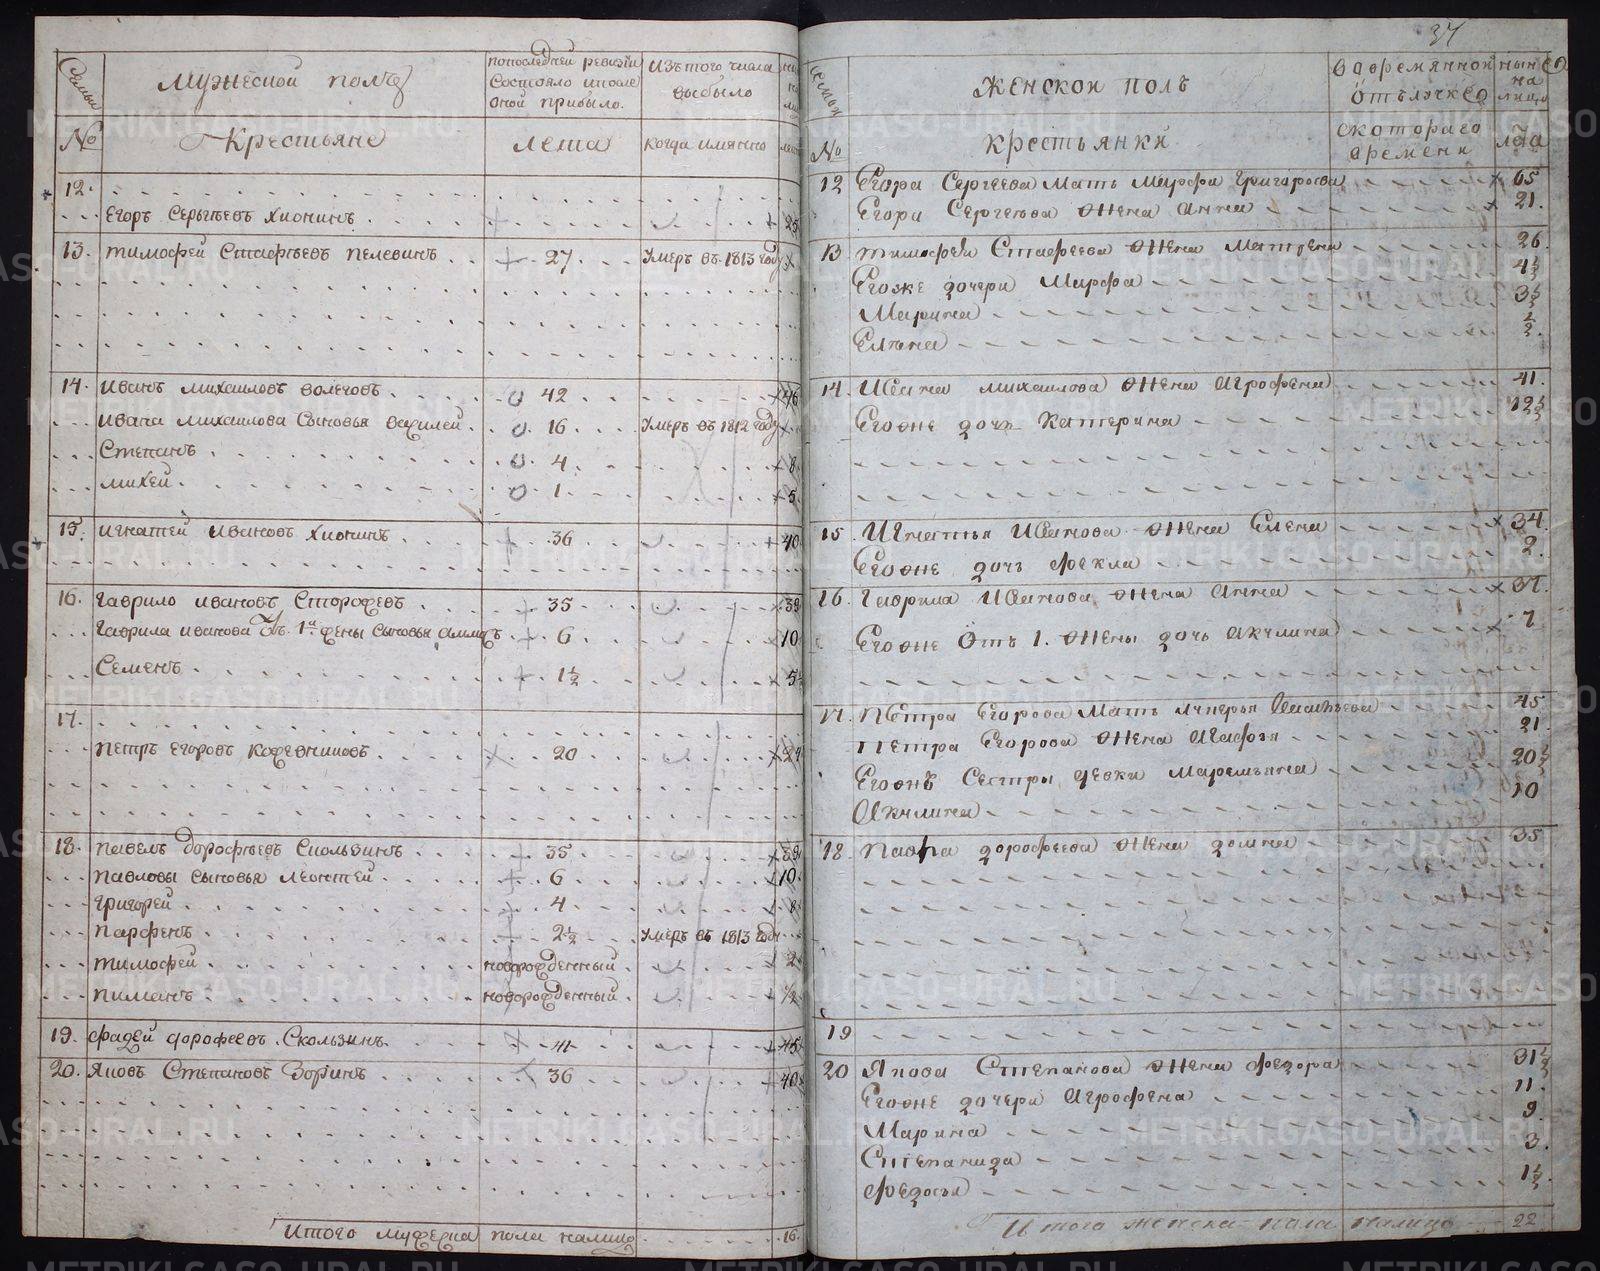 37
Семьи
Мужеской полъ
попоследней ревизiи состояло ипосле оной прибыло.
Изътого числа выбыло
№
Крестьяне
лета
когда имянно
лета
12.
Егоръ Сергѣевъ Хионинъ 25
13. Тимофей Стафѣевъ Пелевинъ 27 Умеръ въ 1813 году
14. Иванъ Михаиловъ Волеговъ 42 46
Ивана Михаилова Сыновья Василей 16 Умеръ въ 1812 году
Степанъ 4 8
Михей 1 5
15. Игнатей Ивановъ Хионинъ 36 40
16. Гаврило Ивановъ 35 39
Гаврила Иванова 1й жены Сыновья 6 10
Семенъ 1½ 5½
17.
Петръ Егоровъ Кожевниковъ 20 24
18. Павелъ Дорофѣевъ Скользинъ 35 39
Павловы Сыновья Леонтей 6 10
Григорей 4 8
Парфенъ 2½ Умеръ въ 1813 году
Тимофей новорожденный 2
Пименъ новорожденный ½
19. Фадей Дорофеевъ Скользинъ 41 45
20. Яковъ Степановъ Зоринъ 36 40
Итого мужеска пола налицо 16.
Семьи
Женскои полъ
Вовремянной отълучке
ныне на лицо
№
Крестьянки
скотораго времени
лета
12 Егора Сергеева Мать Марфа Григорьева 65
Егора Сергеева жена Анна 21.
13 Тимофея Стафеева жена Матрена 26
Егоже дочери Марфа 4½
Марина 3½
Елена ½
14. Ивана Михаилова жена Агрофена 41.
Егоже дочь Катерина 12½
15 Игнатья Иванова жена Елена 34
Егоже дочь Фекла 2.
16. Гаврила Иванова жена Анна 37.
Егоже Отъ 1. жены дочь Акулина 7
17. Петра Егорова Мать Лукерья Васильева 45
Петра Егорова жена Агафья 21
Егожъ Сестры девки Маремьяна 20½
Акулина 10
18. Павла Дорофеева жена Домна 35
19
20 Якова Степанова жена Федора 31½
Егоже дочери Агрофена 11.
Марина 9
Степанида 3.
Федосья 1½
Итого женска пола налицо 22
METRIKI.GASO-URAL.RU